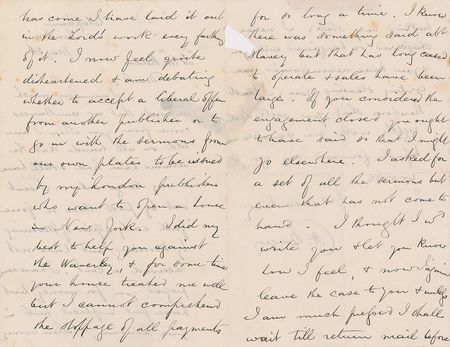 has come I have laid it out
in the Lord's work every farthg
of it. I now feel quite
disheartened & am debating
whether to accept a liberal offer
from another publisher or to
go on with the sermons from
our own plates to be issued
by my London publishers
who want to open a house
in New York. I did my
best to help you against
the Waverley, & for some time
your house treated me well
but I cannot comprehend
the stoppage of all payments
for so long a time. I know
there was something said abt
slavery but that has long ceased
to operate & sales have been
large. If you considered the
engagement closed you ought
to have said so that I might
go elsewhere. I asked for
a set of all the sermons but
even that has not come to
hand I thought I wd
write you & let you know
how I feel, & now I again
leave the case to you & unless
I am much pressed I shall
wait till return mail before